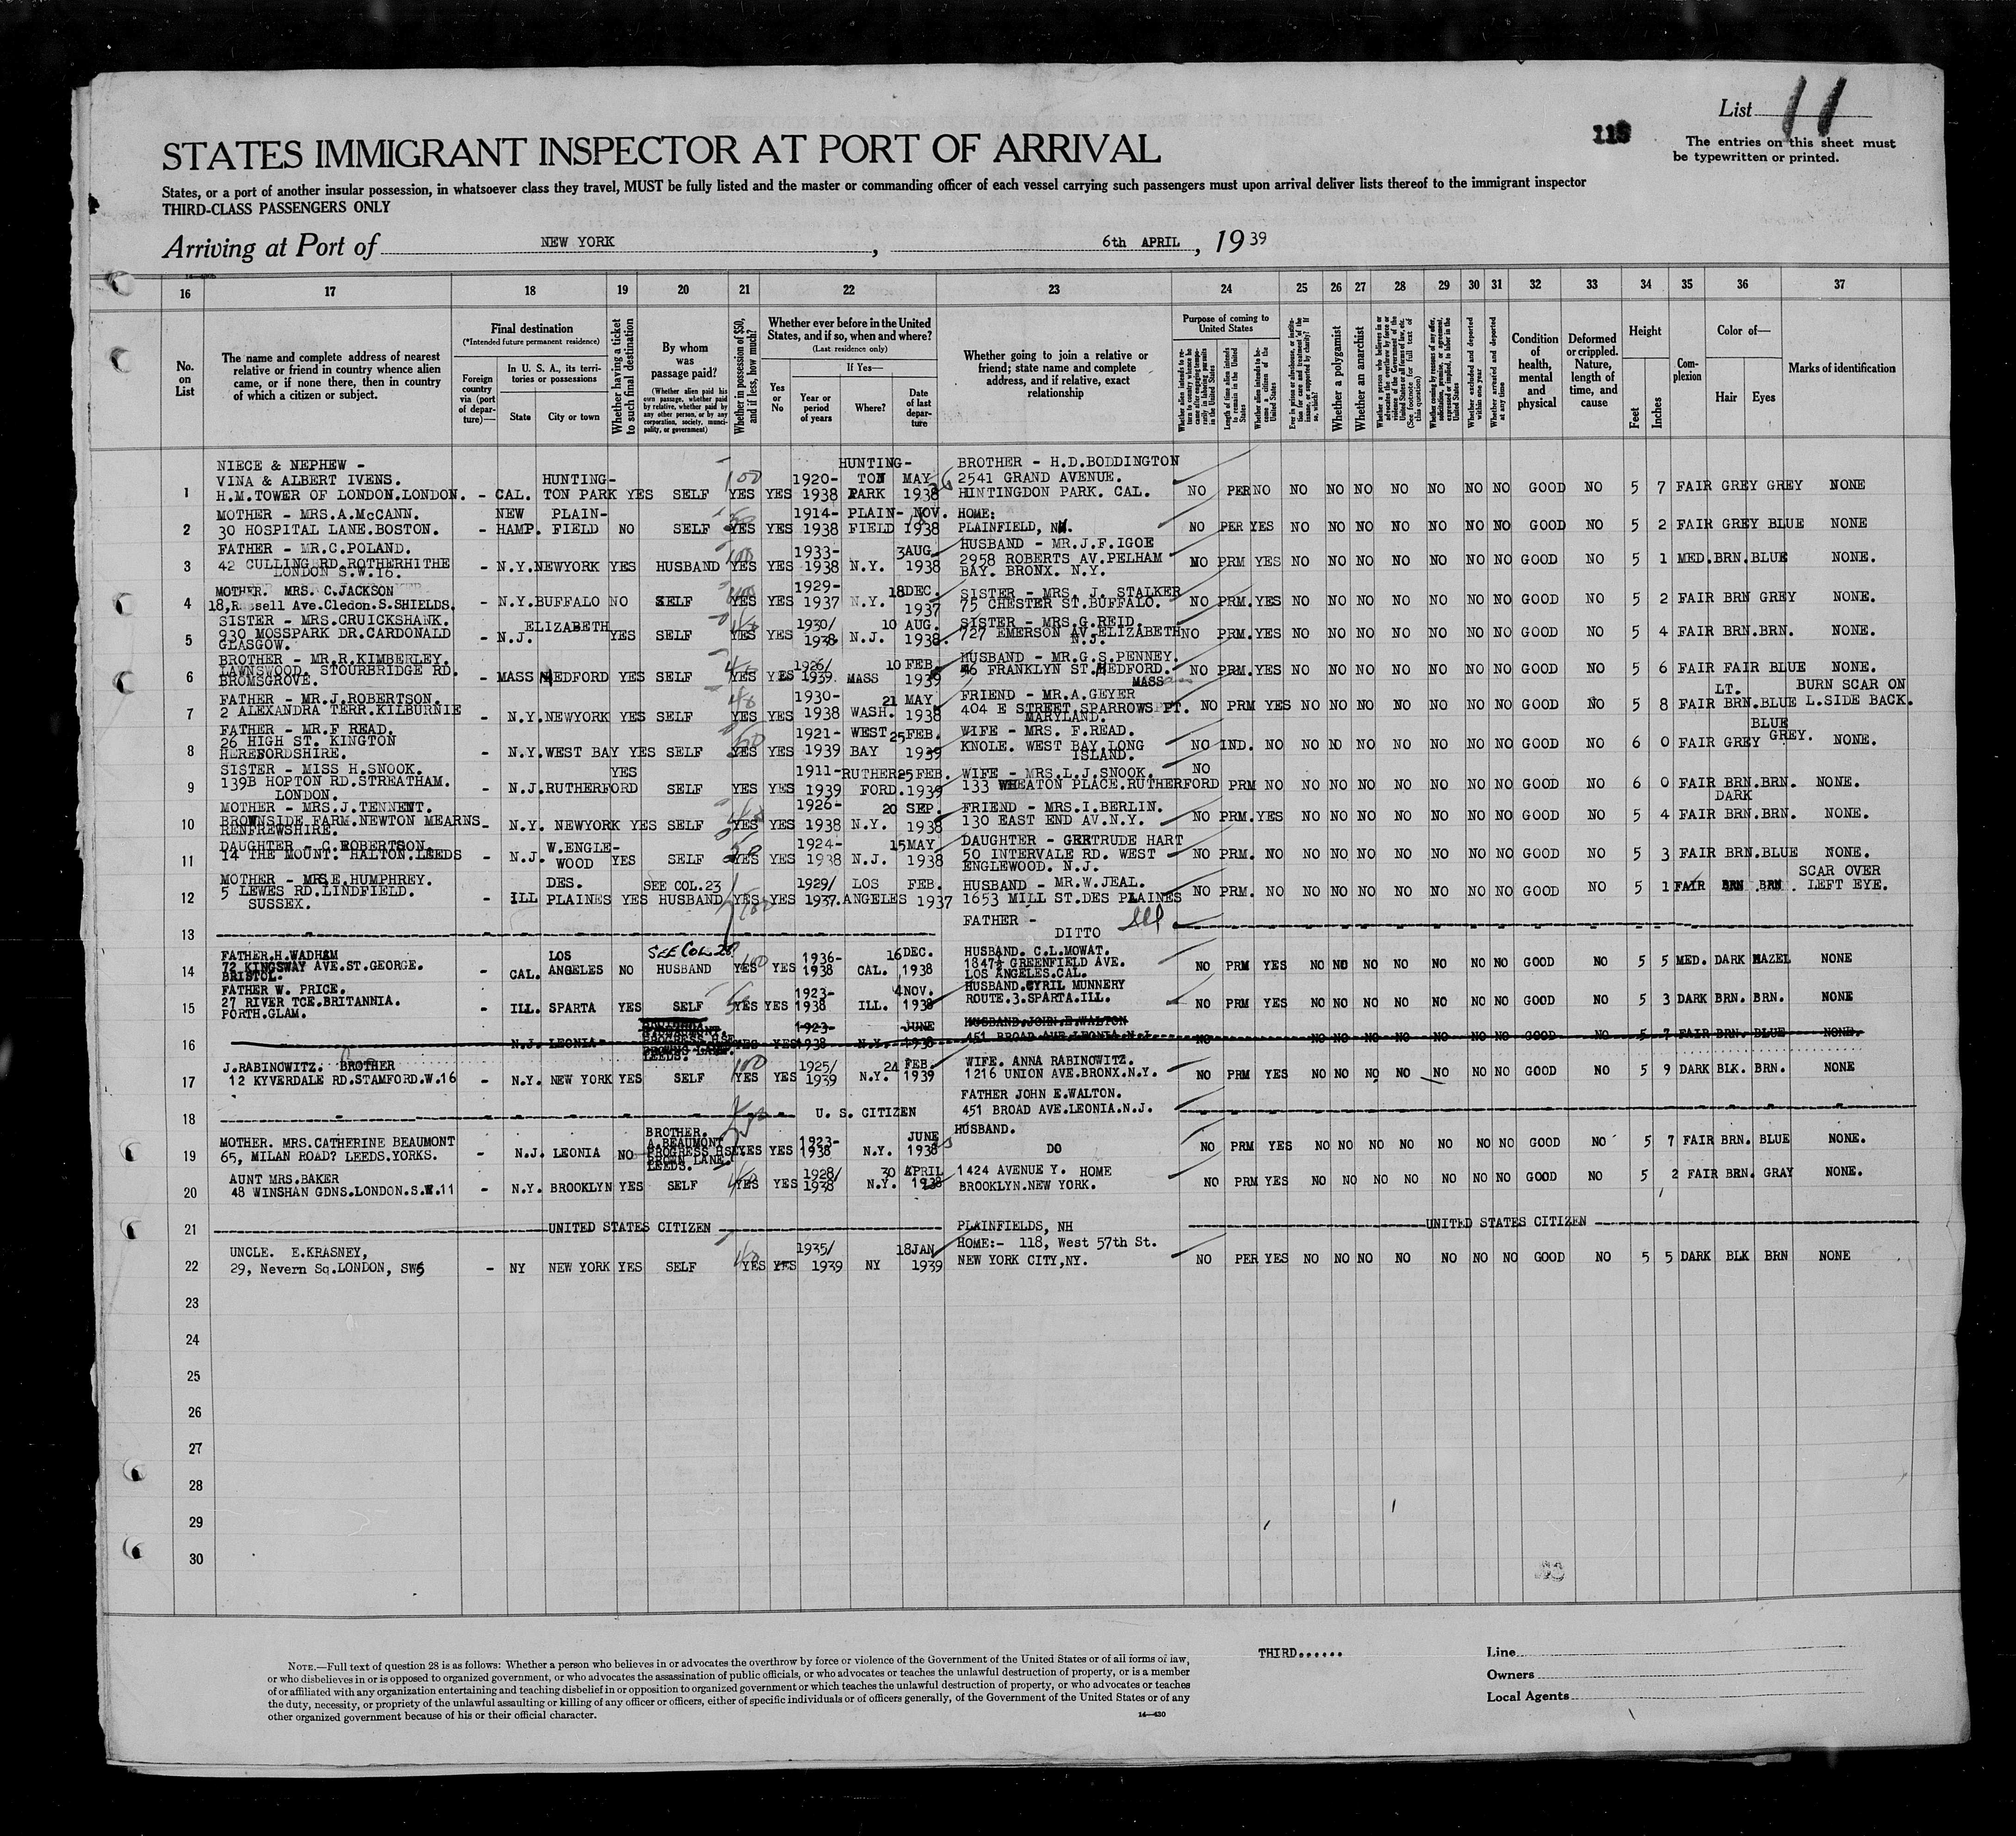 List 11
115
The entries on this sheet must
be typewritten or printed.
STATES IMMIGRANT INSPECTOR AT PORT OF ARRIVAL
States, or a port of another insular possession, in whatsoever class they travel, MUST be fully listed and the master or commanding officer of each vessel carrying such passengers must upon arrival deliver lists thereof to the immigrant inspector
THIRD-CLASS PASSENGERS ONLY
Arriving at Port of NEW YORK, 6th APRIL, 19 39
16 17 18 19 20 21 22 23 24 25 26 27 28 29 30 31 32 33 34 35 36 37
No. on List
The name and complete address of nearest relative or friend in country whence alien came, or if none there, then in country of which a citizen or subject.
Final destination
(*Intended future permanent residence)
Foreign country via (port of departure)—
In U. S. A., its territories or possessions
State
City or town
Whether having a ticket to such final destination
By whom was passage paid?
(Whether alien paid his own passage, whether paid by relative, whether paid by any other person, or by any corporation, society, municipality, or government)
Whether in possession of $50, and if less, how much?
Whether ever before in the United States, and if so, when and where?
(Last residence only)
Yes or No
If Yes—
Year or period of years
Where?
Date of last departure
Whether going to join a relative or friend; state name and complete address, and if relative, exact relationship
Purpose of coming to United States
Whether alien intends to return to country whence he came after engaging temporarily in laboring pursuits in the United States
Length of time alien intends to remain in the United States
Whether alien intends to become a citizen of the United States
Ever in prison or almshouse, or institution for care and treatment of the insane, or supported by charity? If so, which?
Whether a polygamist
Whether an anarchist
Whether a person who believes in or advocates the overthrow by force or violence of the Government of the United States or all forms of law, etc. (See footnote for full text of this question)
Whether coming by reason of any offer, solicitation, promise, or agreement, expressed or implied, to labor in the United States
Whether excluded and deported within one year
Whether arrested and deported at any time
Condition of health, mental and physical
Deformed or crippled. Nature, length of time, and cause
Height
Feet
Inches
Complexion
Color of—
Hair
Eyes
Marks of identification
1 NIECE & NEPHEW - VINA & ALBERT IVENS. H.M.TOWER OF LONDON.LONDON. - CAL. HUNTINGTON PARK YES SELF YES 100 YES 1920-1938 HUNTING-TON PARK MAY 1938 BROTHER - H.D.BODDINGTON 2541 GRAND AVENUE. HUNTINGDON PARK. CAL. NO PER NO NO NO NO NO NO NO NO GOOD NO 5 7 FAIR GREY GREY NONE
2 MOTHER - MRS.A.McCANN. 30 HOSPITAL LANE.BOSTON. - NEW HAMP. PLAIN-FIELD NO SELF YES YES 1914-1938 PLAIN-FIELD NOV. 1938 HOME: PLAINFIELD, NH. NO PER YES NO NO NO NO NO NO NO GOOD NO 5 2 FAIR GREY BLUE NONE
3 FATHER - MR.C.POLAND. 42 CULLING RD.ROTHERHITHE LONDON S.W.16. - N.Y. NEWYORK YES HUSBAND YES YES 1933-1938 N.Y. 3AUG. 1938 HUSBAND - MR.J.F.IGOE 2958 ROBERTS AV.PELHAM BAY. BRONX. N.Y. NO PRM YES NO NO NO NO NO NO NO GOOD NO 5 1 MED. BRN. BLUE NONE.
4 MOTHER. MRS. C.JACKSON 18,Russell Ave.Cledon.S.SHIELDS. - N.Y. BUFFALO NO SELF YES YES 1929-1937 N.Y. 18DEC. 1937 SISTER - MRS. J. STALKER 75 CHESTER ST.BUFFALO. NO PRM. YES NO NO NO NO NO NO NO GOOD NO 5 2 FAIR BRN GREY NONE.
5 SISTER - MRS.CRUICKSHANK. 930 MOSSPARK DR.CARDONALD GLASGOW. - N.J. ELIZABETH YES SELF YES YES 1930/1938 N.J. 10 AUG. 1938. SISTER - MRS.G.REID. 727 EMERSON AV.ELIZABETH N.J. NO PRM. YES NO NO NO NO NO NO NO GOOD NO 5 4 FAIR BRN. BRN. NONE.
6 BROTHER - MR.R.KIMBERLEY. LAWNSWOOD. STOURBRIDGE RD. BROMSGROVE. - MASS MEDFORD YES SELF YES YES 1926/1939. MASS 10 FEB. 1939 HUSBAND - MR.G.S.PENNEY. 46 FRANKLYN ST.MEDFORD. MASS NO PRM. YES NO NO NO NO NO NO NO GOOD NO 5 6 FAIR FAIR BLUE NONE.
7 FATHER - MR.J.ROBERTSON. 2 ALEXANDRA TERR.KILBURNIE - N.Y. NEWYORK YES SELF YES YES 1930-1938 WASH. 21 MAY 1938 FRIEND - MR.A.GEYER 404 E STREET.SPARROWS PT. MARYLAND. NO PRM YES NO NO NO NO NO NO NO GOOD NO 5 8 FAIR LT. BRN. BLUE BURN SCAR ON L.SIDE BACK.
8 FATHER - MR.F READ. 26 HIGH ST. KINGTON HEREFORDSHIRE. - N.Y. WEST BAY YES SELF YES YES 1921-1939 WEST BAY 25FEB. 1939 WIFE - MRS. F.READ. KNOLE. WEST BAY.LONG ISLAND. NO IND. NO NO NO NO NO NO NO NO GOOD NO 6 0 FAIR GREY BLUE GREY. NONE.
9 SISTER - MISS H.SNOOK. 139B HOPTON RD.STREATHAM. LONDON. - N.J. RUTHERFORD YES SELF YES YES 1911-1939 RUTHERFORD. 25 FEB. 1939 WIFE - MRS.L.J.SNOOK. 133 WHEATON PLACE.RUTHERFORD NO PRM NO NO NO NO NO NO NO NO GOOD NO 6 0 FAIR BRN. BRN. NONE.
10 MOTHER - MRS.J.TENNENT. BROWNSIDE FARM.NEWTON MEARNS RENFREWSHIRE. - N.Y. NEWYORK YES SELF YES YES 1926-1938 N.Y. 20 SEP. 1938 FRIEND - MRS.I.BERLIN. 130 EAST END AV.N.Y. NO PRM. YES NO NO NO NO NO NO NO GOOD NO 5 4 FAIR DARK BRN. BRN. NONE.
11 DAUGHTER - C.ROBERTSON. 14 THE MOUNT. HALTON.LEEDS - N.J. W.ENGLE-WOOD YES SELF YES YES 1924-1938 N.J. 15MAY 1938 DAUGHTER - GERTRUDE HART 50 INTERVALE RD. WEST ENGLEWOOD. N.J. NO PRM. NO NO NO NO NO NO NO NO GOOD NO 5 3 FAIR BRN. BLUE NONE.
12 MOTHER - MRS.E.HUMPHREY. 5 LEWES RD.LINDFIELD. SUSSEX. - ILL DES. PLAINES YES SEE COL.23 HUSBAND YES YES 1929/1937. LOS ANGELES FEB. 1937 HUSBAND - MR.W.JEAL. 1653 MILL ST.DES PLAINES NO PRM. NO NO NO NO NO NO NO NO GOOD NO 5 1 FAIR BRN BRN. SCAR OVER LEFT EYE.
13 FATHER - DITTO Ill
14 FATHER.H.WADHAM 72 KINGSWAY AVE.ST.GEORGE. BRISTOL. - CAL. LOS ANGELES NO SEE COL. 23 HUSBAND YES YES 1936-1938 CAL. 16DEC. 1938 HUSBAND. C.L.MOWAT. 1847½ GREENFIELD AVE. LOS ANGELES.CAL. NO PRM YES NO NO NO NO NO NO NO GOOD NO 5 5 MED. DARK HAZEL NONE
15 FATHER W. PRICE. 27 RIVER TCE.BRITANNIA. PORTH.GLAM. - ILL. SPARTA YES SELF YES YES 1923-1938 ILL. 4NOV. 1938 HUSBAND.CYRIL MUNNERY ROUTE.3.SPARTA.ILL. NO PRM YES NO NO NO NO NO NO NO GOOD NO 5 3 DARK BRN. BRN. NONE
16 N.J. LEONIA PROGRESS HSE LEEDS. YES YES 1923-1938 N.Y. JUNE 1938 HUSBAND.JOHN.E.WALTON 451 BROAD AVE.LEONIA.N.J. NO NO NO NO NO NO NO NO GOOD NO 5 7 FAIR BRN. BLUE NONE.
17 J.RABINOWITZ. BROTHER 12 KYVERDALE RD.STAMFORD.W.16 - N.Y. NEW YORK YES SELF YES 100 YES 1925/1939 N.Y. 24 FEB. 1939 WIFE. ANNA RABINOWITZ. 1216 UNION AVE.BRONX.N.Y. NO PRM YES NO NO NO NO NO NO NO GOOD NO 5 9 DARK BLK. BRN. NONE
18 U. S. CITIZEN FATHER JOHN E.WALTON. 451 BROAD AVE.LEONIA.N.J.
19 MOTHER. MRS.CATHERINE BEAUMONT 65, MILAN ROAD? LEEDS.YORKS. - N.J. LEONIA NO BROTHER. A.BEAUMONT PROGRESS HSE. BROWN LANE. LEEDS. YES YES 1923-1938 N.Y. JUNE 1938 HUSBAND. DO NO PRM YES NO NO NO NO NO NO NO GOOD NO 5 7 FAIR BRN. BLUE NONE.
20 AUNT MRS.BAKER 48 WINSHAN GDNS.LONDON.S.W.11 - N.Y. BROOKLYN YES SELF YES YES 1928/1938 N.Y. 30 APRIL 1938 1424 AVENUE Y. HOME BROOKLYN.NEW YORK. NO PRM YES NO NO NO NO NO NO NO GOOD NO 5 2 FAIR BRN. GRAY NONE.
21 UNITED STATES CITIZEN PLAINFIELDS, NH UNITED STATES CITIZEN
22 UNCLE. E.KRASNEY, 29, Nevern Sq.LONDON, SW5 - NY NEW YORK YES SELF YES YES 1935/1939 NY 18JAN 1939 HOME:- 118, West 57th St. NEW YORK CITY,NY. NO PER YES NO NO NO NO NO NO NO GOOD NO 5 5 DARK BLK BRN NONE
23
24
25
26
27
28
29
30
NOTE.—Full text of question 28 is as follows: Whether a person who believes in or advocates the overthrow by force or violence of the Government of the United States or of all forms of law,
or who disbelieves in or is opposed to organized government, or who advocates the assassination of public officials, or who advocates or teaches the unlawful destruction of property, or is a member
of or affiliated with any organization entertaining and teaching disbelief in or opposition to organized government or which teaches the unlawful destruction of property, or who advocates or teaches
the duty, necessity, or propriety of the unlawful assaulting or killing of any officer or officers, either of specific individuals or of officers generally, of the Government of the United States or of any
other organized government because of his or their official character.
14—430
THIRD......
Line
Owners
Local Agents